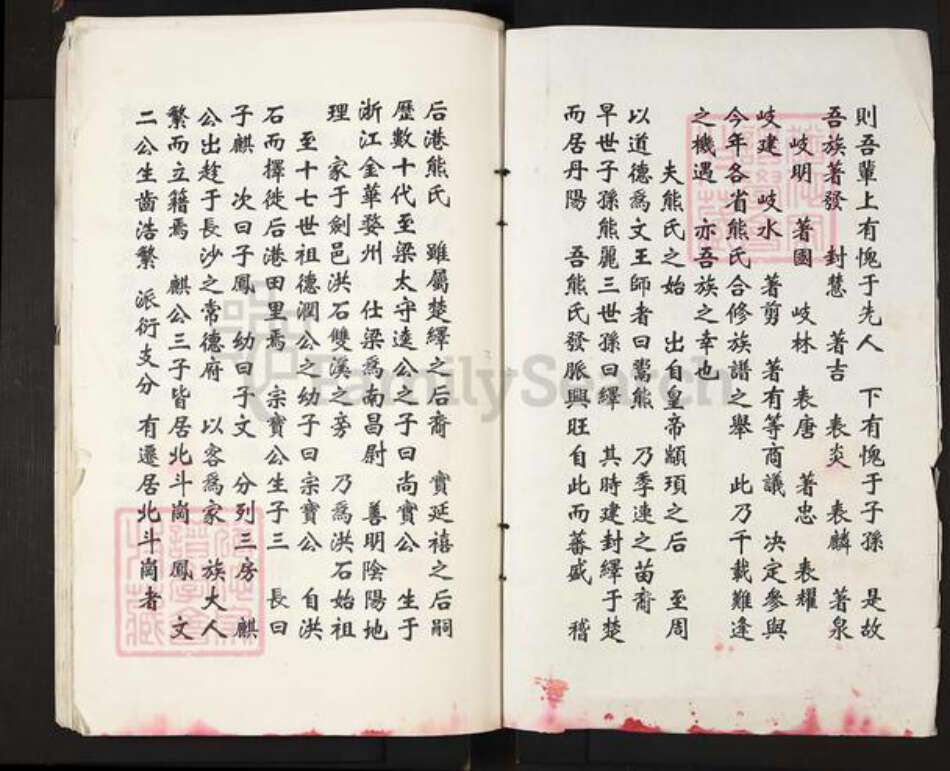 則吾輩上有愧于先人　下有愧于子孫　是故
吾族著發　封慧　著吉　表炎　表麟　著泉
岐明　著國　岐林　表唐　著忠　表耀
岐建　岐水　著剪　著有等商議　决定參與
今年各省熊氏合修族譜之舉　此乃千載難逢
之機遇　亦吾族之幸也
夫熊氏之始　出自皇帝顓頊之后　至周
以道德爲文王師者曰鬻熊　乃季連之苗裔
早世子孫熊麗三世孫曰繹　其時建封繹于楚
而居丹陽　吾熊氏發脈興旺自此而蕃盛　稽
后港熊氏　雖屬楚繹之后裔　實延禧之后嗣
歷數十代至梁太守遠公之子曰尚實公　生于
浙江金華婺州　仕梁爲南昌尉　善明陰陽地
理　家于劍邑洪石雙溪之旁　乃爲洪石始祖
至十七世祖德潤公之幼子曰宗寶公　自洪
石而擇徙后港田里焉　宗寶公生子三　長曰
子麒　次曰子鳳　幼曰子文　分列三房　麒
公出趁于長沙之常德府　以客爲家　族大人
繁而立籍焉　麒公三子皆居北斗崗　鳳　文
二公生齒浩繁　派衍支分　有遷居北斗崗者
FamilySearch